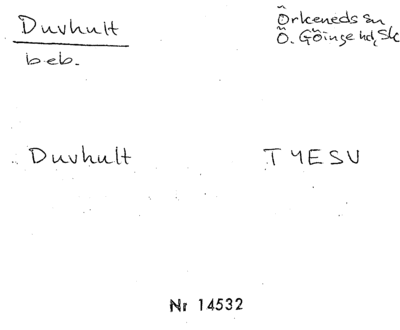 Duvhult
Örkeneds sn
beb.
Ö. Göinge hd, Sk
Duvhult TYESU
Nr 14532